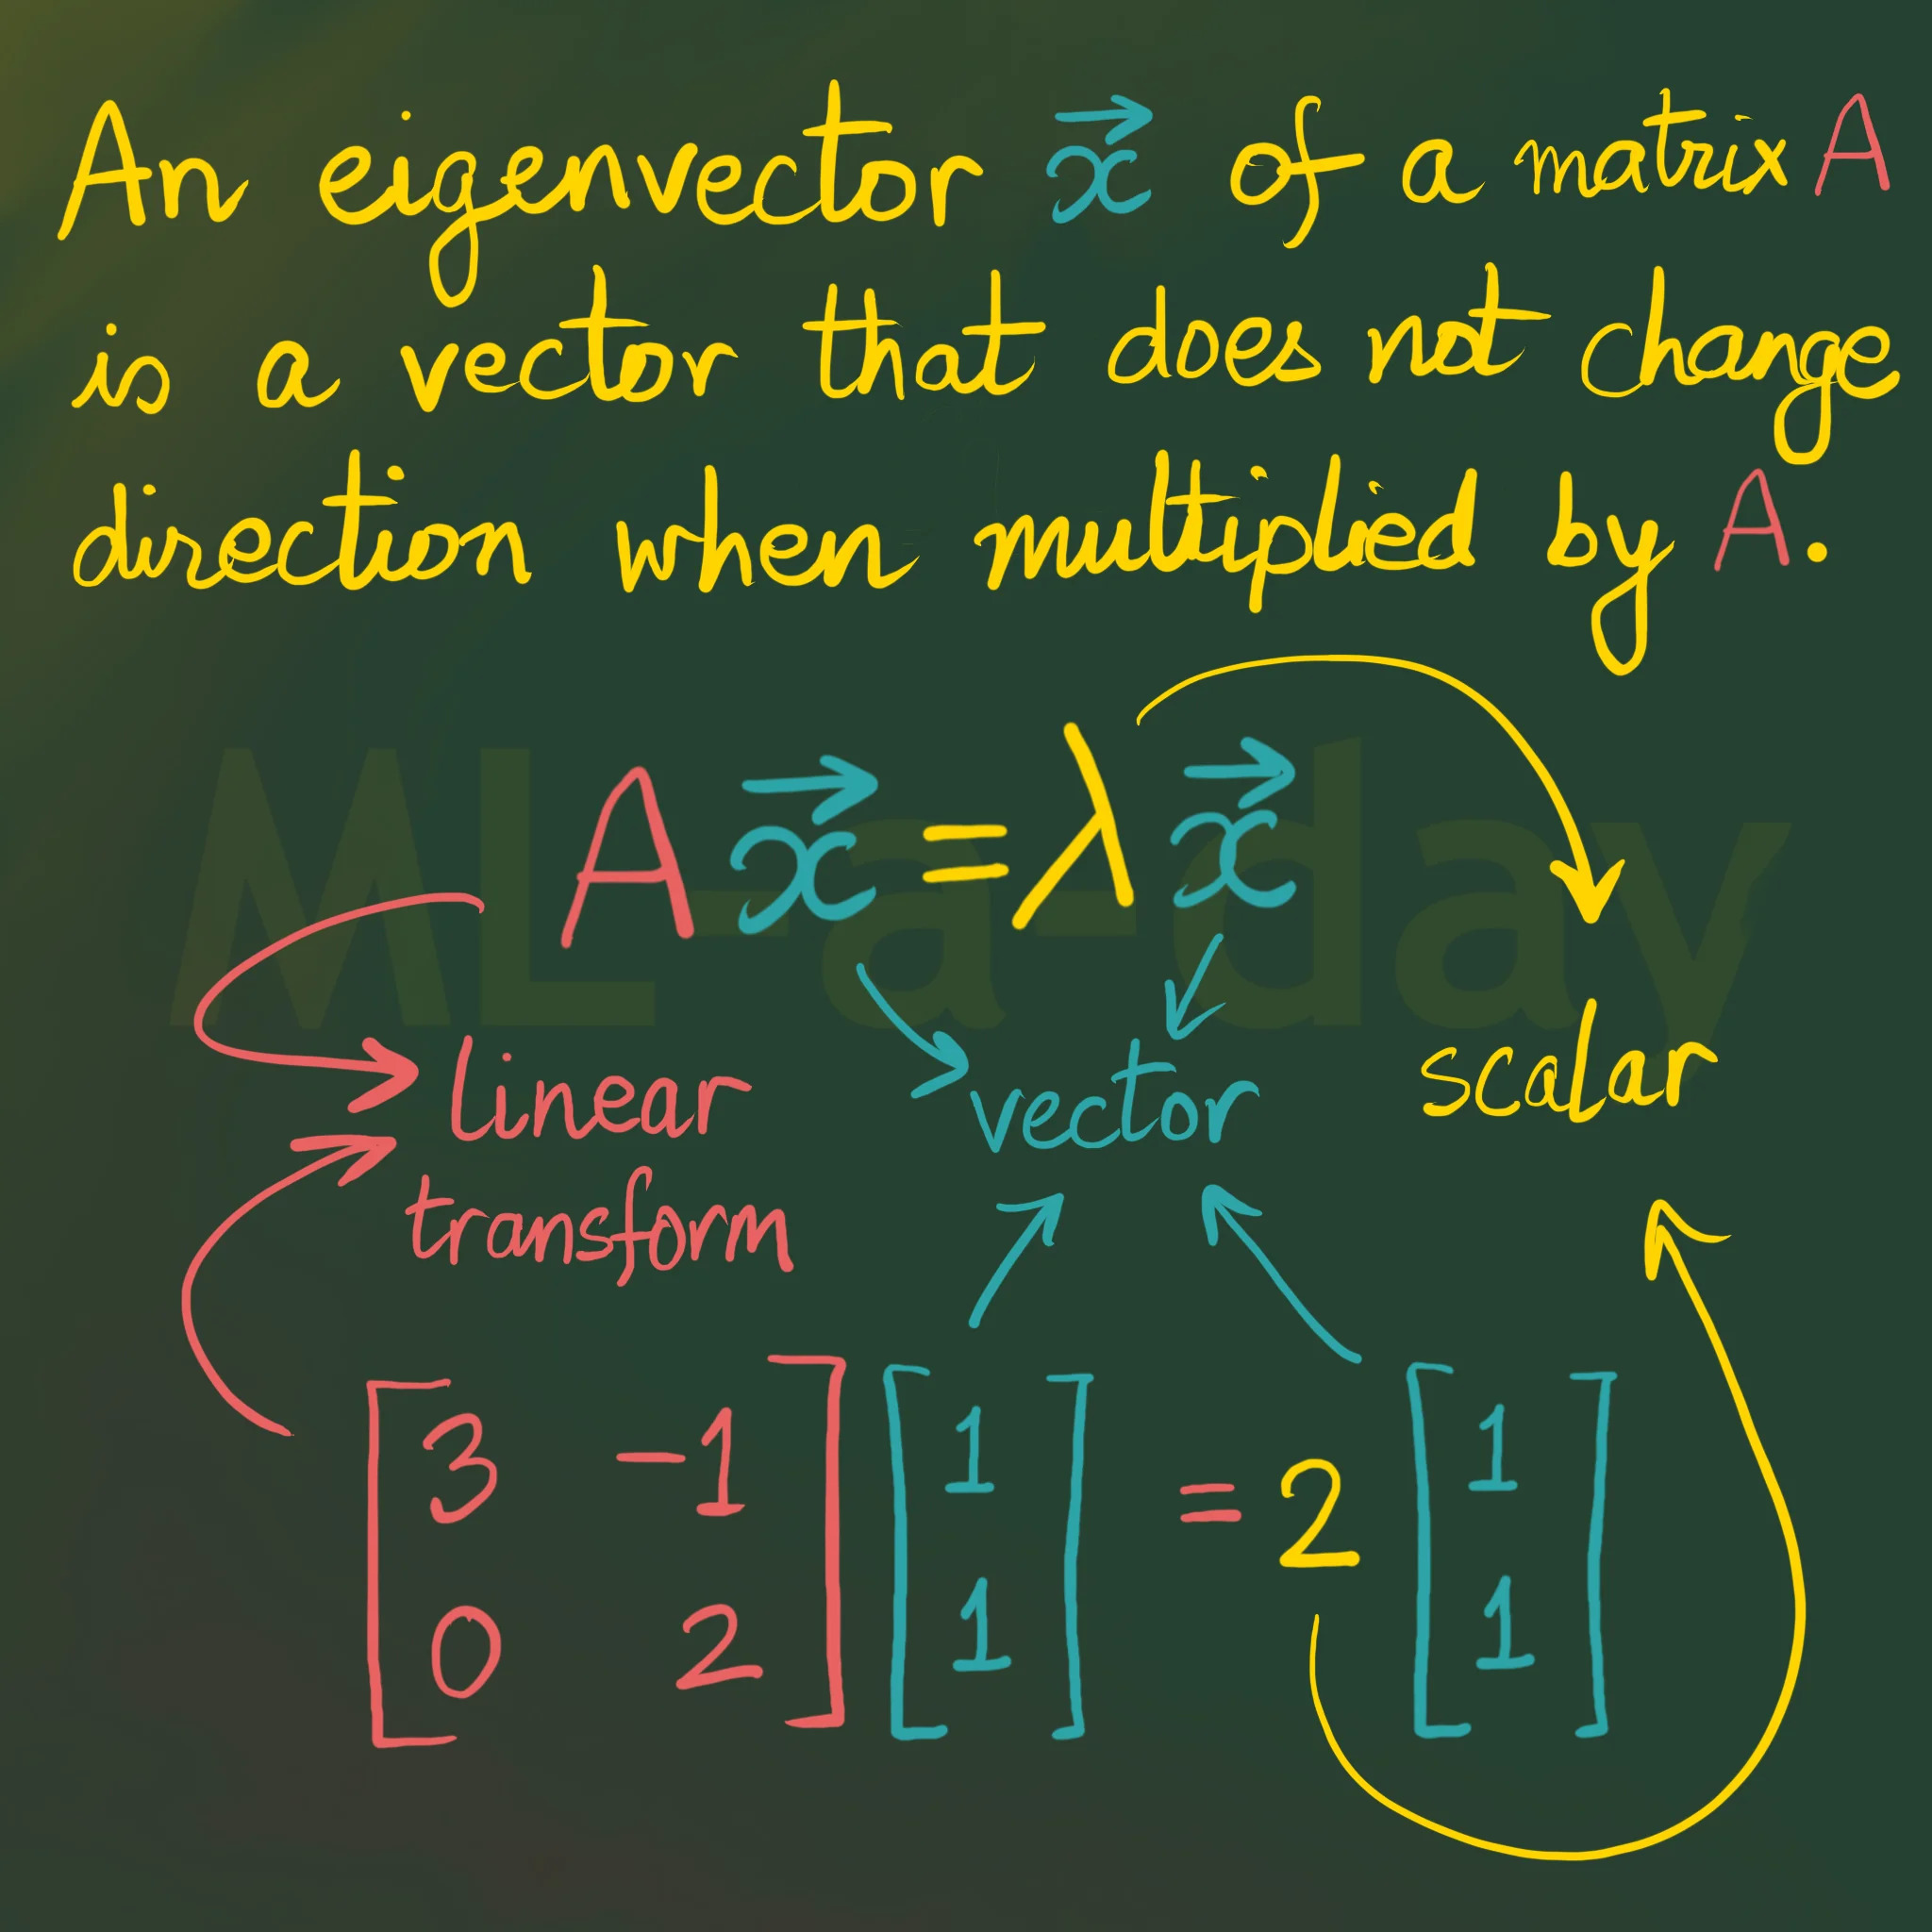 An eigenvector x⃗ of a matrix A
is a vector that does not change
direction when multiplied by A.
A x⃗ = λ x⃗
ML-a-day
linear
transform
vector
scalar
[3 -1] [1] = 2 [1]
[0 2] [1] [1]